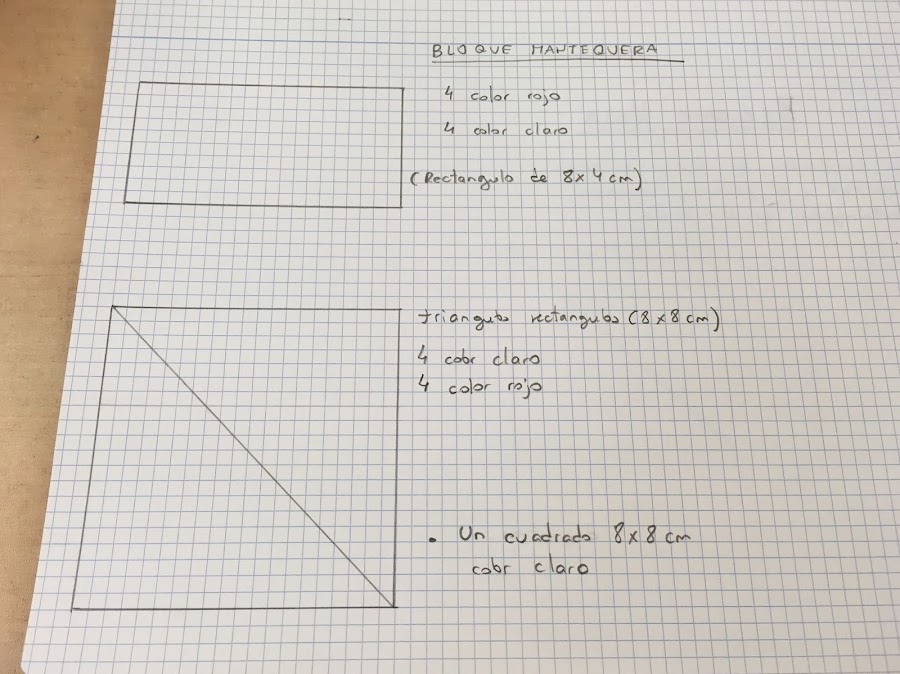 BLOQUE MANTEQUERA
4 color rojo
4 color claro
(Rectangulo de 8x4cm)
triangulos rectangulos (8x8cm)
4 color claro
4 color rojo
• Un cuadrado 8x8cm
color claro